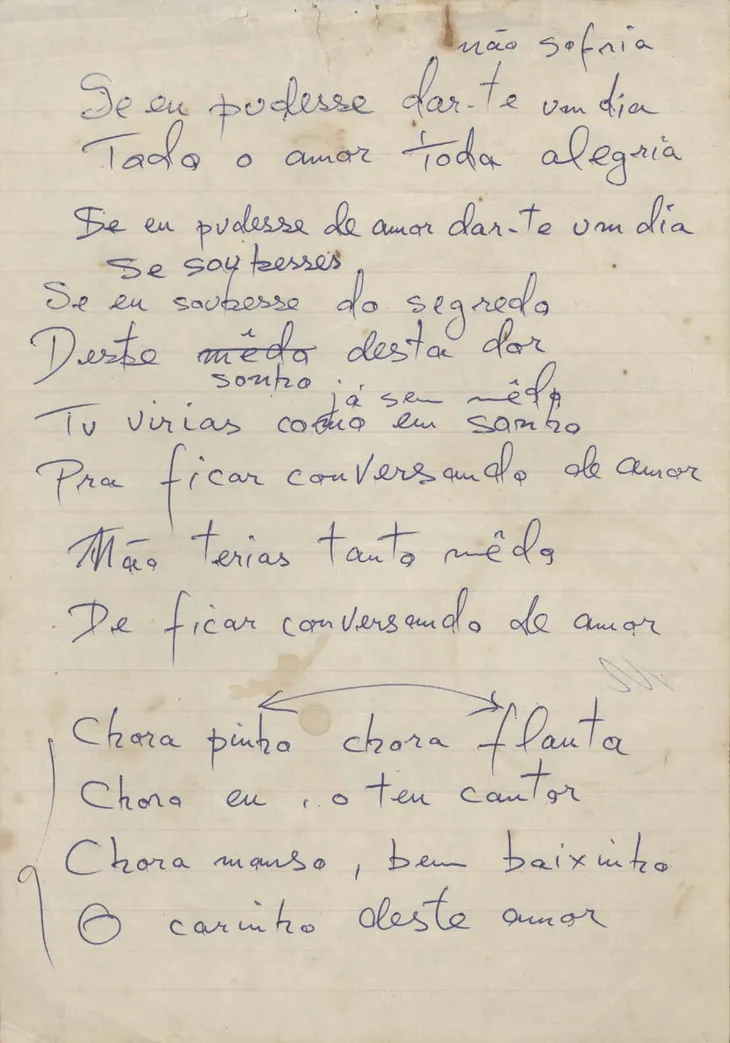 não sofria
Se eu pudesse dar-te um dia
Todo o amor toda alegria
Se eu pudesse de amor dar-te um dia
Se soubesses
Se eu soubesse do segredo
Deste mêdo desta dor
sonho já sem mêdo
Tu virias como em sonho
Pra ficar conversando de amor
Não terias tanto mêdo
De ficar conversando de amor
Chora pinho chora flauta
Chora eu, o teu cantor
Chora manso, bem baixinho
O carinho deste amor